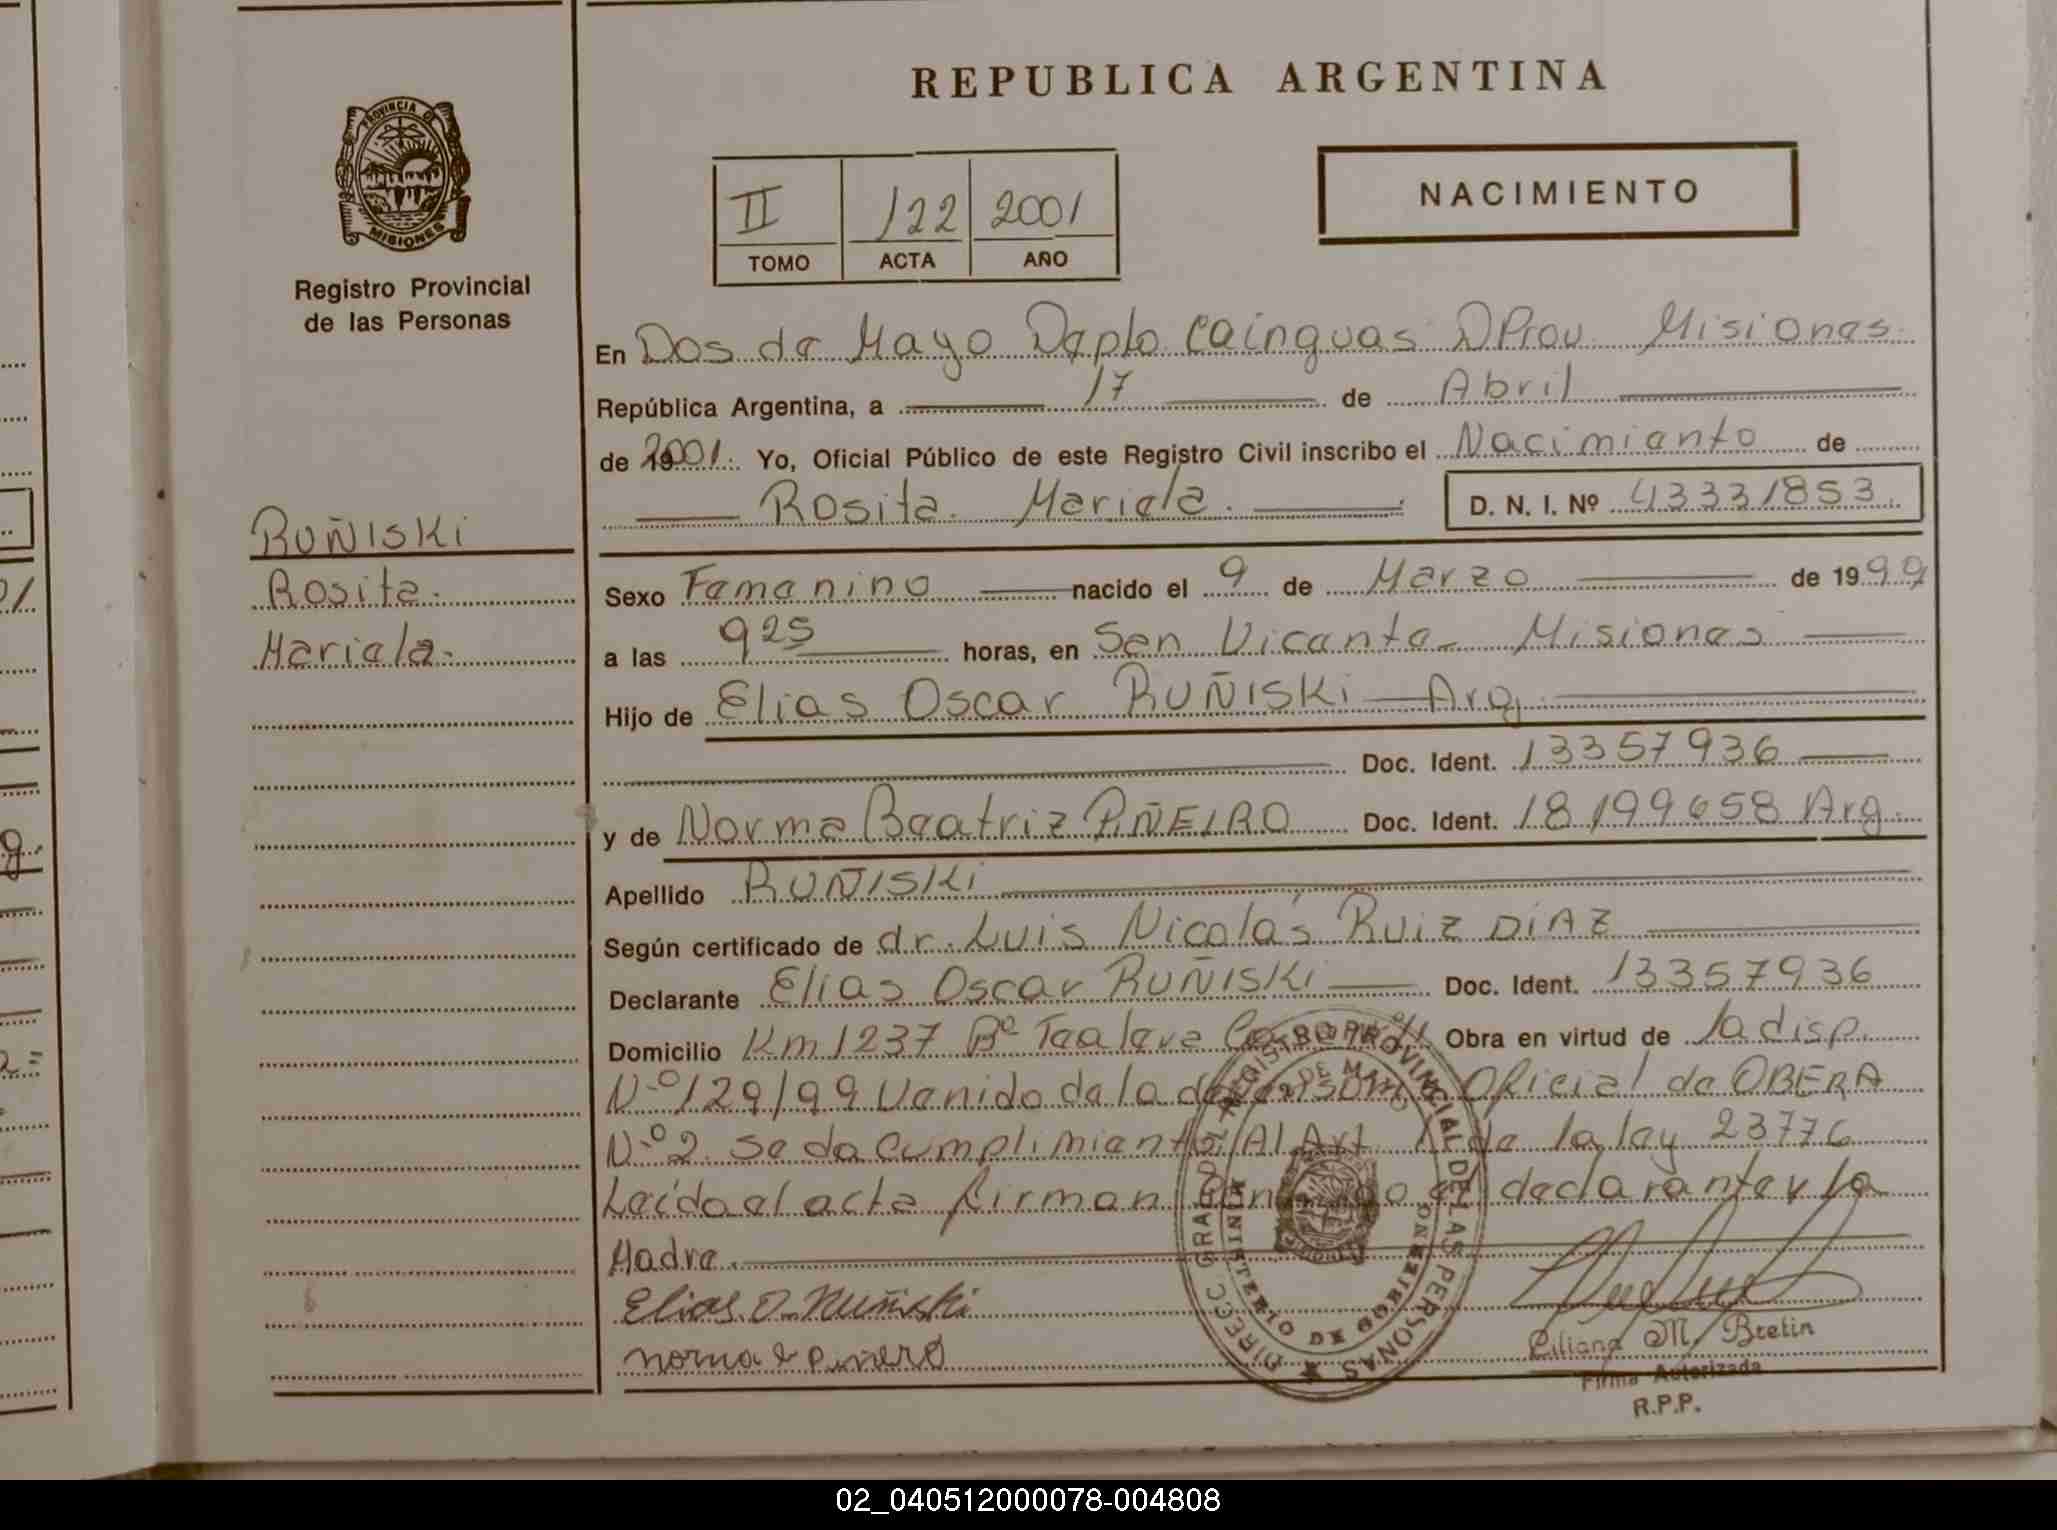 REPUBLICA ARGENTINA
PROVINCIA DE
MISIONES
Registro Provincial
de las Personas
II 122 2001
TOMO ACTA AÑO
NACIMIENTO
En Dos de Mayo Depto Cainguas DProv. Misiones
República Argentina, a 17 de Abril
de 2001. Yo, Oficial Público de este Registro Civil inscribo el Nacimiento de
Rosita Mariela. D. N. I. Nº 43331853.
RUÑISKi
Rosita.
Mariela.
Sexo Femenino nacido el 9 de Marzo de 1999
a las 925 horas, en San Vicente - Misiones
Hijo de Elias Oscar RUÑISKi - Arg.
Doc. Ident. 13357936
y de Norma Beatriz PIÑEIRO Doc. Ident. 18199658 Arg.
Apellido RUÑISKi
Según certificado de dr. Luis Nicolás Ruiz DÍAZ
Declarante Elias Oscar RUÑISKi Doc. Ident. 13357936
Domicilio Km 1237 Bº Obra en virtud de la disp.
Nº 129/99 Venido de la Oficial de OBERA
Nº 2. Se da cumplimiento Al Art. 1 de la ley 23776
Leída el acta firman conmigo el declarante y la
Madre.
Elias O. Ruñiski
norma b piñero
DIRECC. GRAL. DEL REGISTRO PROVINCIAL DE LAS PERSONAS
2 DE MAYO
MINISTERIO DE GOBIERNO
Liliana M. Bretin
Firma Autorizada
R.P.P.
02_040512000078-004808